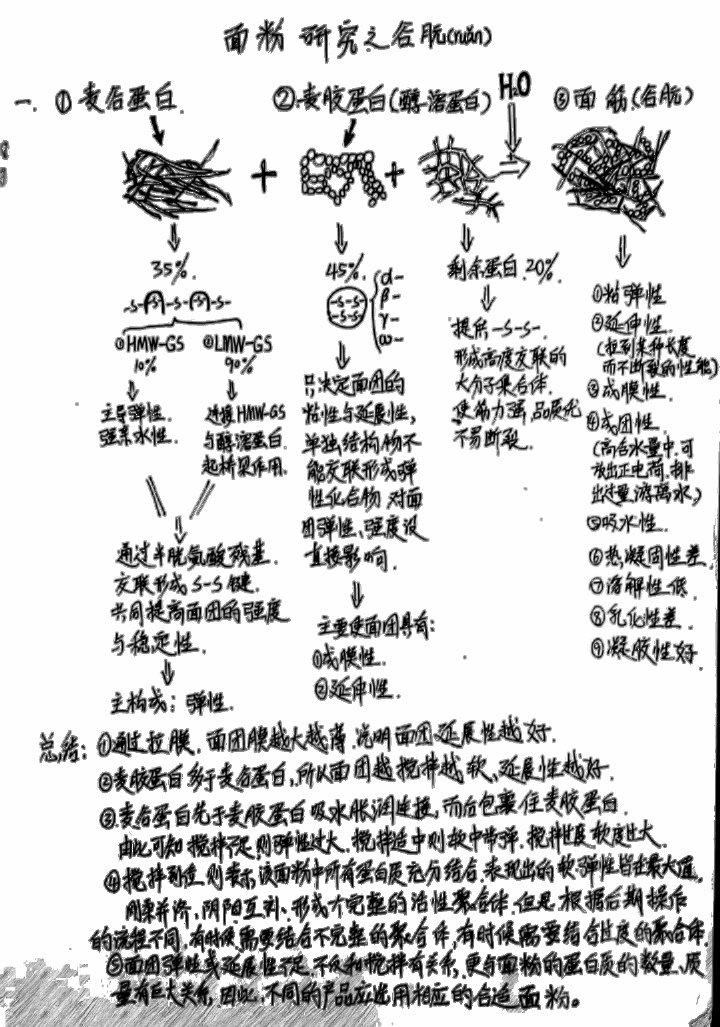 面粉研究之谷朊(ruǎn)
一. ①麦谷蛋白. ②麦胶蛋白(醇溶蛋白) H₂O ③面筋(谷朊)
+ +
35%.
-S-S-S-S-
①HMW-GS ②LMW-GS
10% 90%
主导弹性. 连接HMW-GS
强亲水性. 与醇溶蛋白
起桥梁作用.
通过半胱氨酸残基.
交联形成S-S键.
共同提高面团的强度
与稳定性.
主构成:弹性.
45%.
-S-S-
-S-S-
α-
β-
γ-
ω-
只决定面团的
粘性与延展性,
单独结构物不
能交联形成弹
性化合物.对面
团弹性、强度没
直接影响.
主要使面团具有:
①成膜性.
②延伸性.
剩余蛋白.20%
提供-S-S-.
形成高度交联的
大分子聚合体.
使筋力强,品质优
不易断裂.
①粘弹性
②延伸性.
(拉到某种长度
而不断裂的性能)
③成膜性.
④成团性.
(高含水量中.可
放出正电荷.排
出过量游离水)
⑤吸水性.
⑥热凝固性差.
⑦溶解性低.
⑧乳化性差.
⑨凝胶性好.
总结:①通过拉膜.面团膜越大越薄.说明面团延展性越好.
②麦胶蛋白多于麦谷蛋白,所以面团越搅拌越软、延展性越好.
③麦谷蛋白先于麦胶蛋白吸水胀润连接,而后包裹住麦胶蛋白.
由此可知搅拌不足则弹性过大.搅拌适中则软中带弹.搅拌过度软度过大.
④搅拌到位则表示该面粉中所有蛋白质充分结合.表现出的软弹性皆在最大值.
刚柔并济,阴阳互补.形成了完整的活性聚合体.但是.根据后期操作
的流程不同.有时候需要结合不完整的聚合体,有时候需要结合过度的聚合体.
⑤面团弹性或延展性不足.不仅和搅拌有关系.更与面粉的蛋白质的数量、质
量有巨大关系.因此.不同的产品应选用相应的合适面粉。